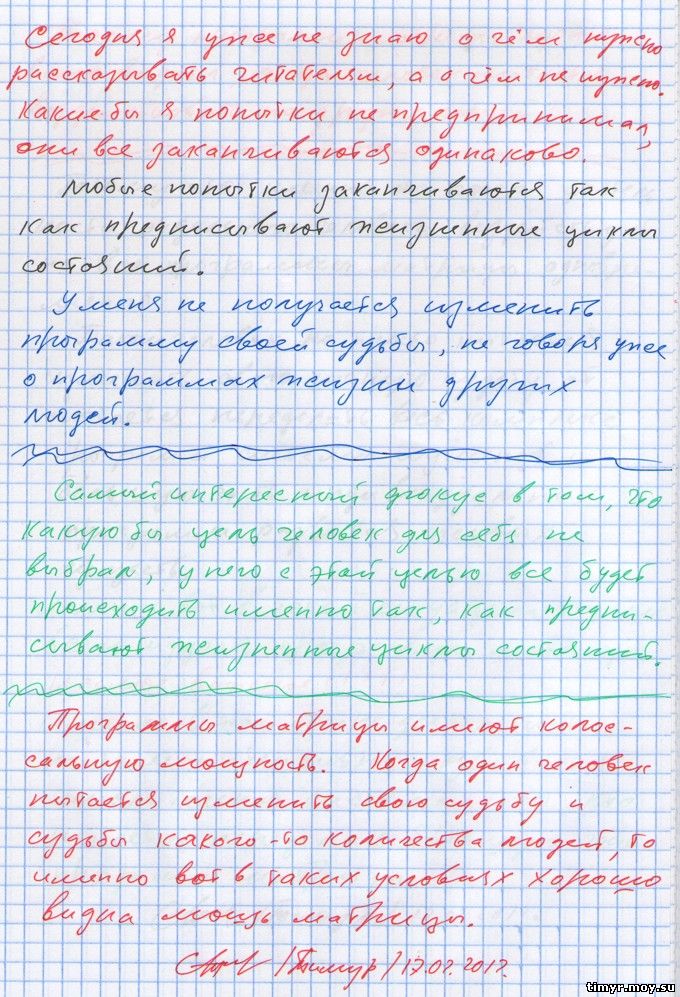 Сегодня я уже не знаю о чём нужно
рассказывать читателям, а о чём не нужно.
Какие бы я попытки не предпринимал,
они все заканчиваются одинаково.
Любые попытки заканчиваются так
как предписывают жизненные циклы
состояний.
У меня не получается изменить
программу своей судьбы, не говоря уже
о программах жизни других
людей.
Самый интересный фокус в том, что
какую бы цель человек для себя не
выбрал, у него с этой целью все будет
происходить именно так, как предпи-
сывают жизненные циклы состояний.
Программы матрицы имеют колос-
сальную мощность. Когда один человек
пытается изменить свою судьбу и
судьбы какого-то количества людей, то
именно вот в таких условиях хорошо
видна мощь матрицы.
/Тимур/ 17.02.2017.
timyr.moy.su